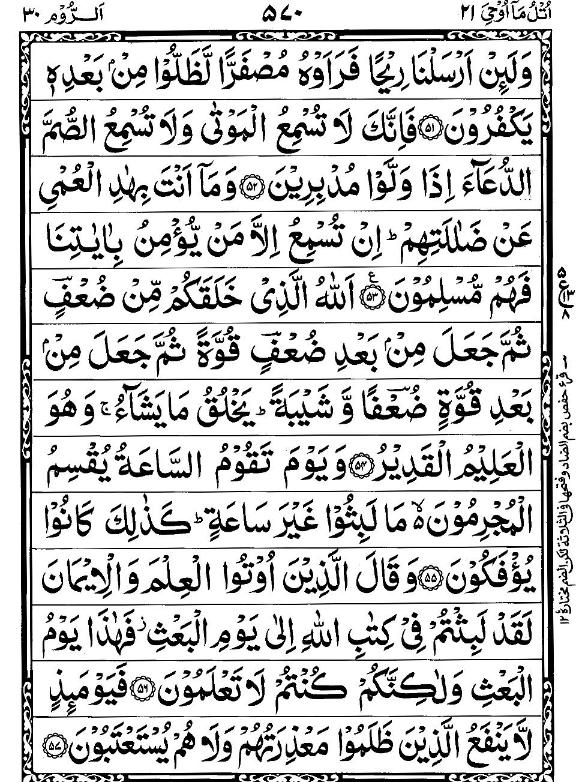 اُتْلُ مَآ اُوْحِیَ ٢١
٥٧٠
اَلرُّوْم ٣٠
وَلَىِٕنْ اَرْسَلْنَا رِیْحًا فَرَاَوْهُ مُصْفَرًّا لَّظَلُّوْا مِنْۢ بَعْدِهٖ
یَكْفُرُوْنَ ﴿٥١﴾ فَاِنَّكَ لَا تُسْمِعُ الْمَوْتٰی وَلَا تُسْمِعُ الصُّمَّ
الدُّعَآءَ اِذَا وَلَّوْا مُدْبِرِیْنَ ﴿٥٢﴾ وَمَآ اَنْتَ بِهٰدِ الْعُمْیِ
عَنْ ضَلٰلَتِهِمْ ؕ اِنْ تُسْمِعُ اِلَّا مَنْ یُّؤْمِنُ بِاٰیٰتِنَا
فَهُمْ مُّسْلِمُوْنَ ﴿٥٣﴾ اَللّٰهُ الَّذِیْ خَلَقَكُمْ مِّنْ ضُعْفٍ
ثُمَّ جَعَلَ مِنْۢ بَعْدِ ضُعْفٍ قُوَّةً ثُمَّ جَعَلَ مِنْۢ
بَعْدِ قُوَّةٍ ضُعْفًا وَّشَیْبَةً ؕ یَخْلُقُ مَا یَشَآءُ ۚ وَهُوَ
الْعَلِیْمُ الْقَدِیْرُ ﴿٥٤﴾ وَیَوْمَ تَقُوْمُ السَّاعَةُ یُقْسِمُ
الْمُجْرِمُوْنَ ۙ۬ مَا لَبِثُوْا غَیْرَ سَاعَةٍ ؕ كَذٰلِكَ كَانُوْا
یُؤْفَكُوْنَ ﴿٥٥﴾ وَقَالَ الَّذِیْنَ اُوْتُوا الْعِلْمَ وَالْاِیْمَانَ
لَقَدْ لَبِثْتُمْ فِیْ كِتٰبِ اللّٰهِ اِلٰی یَوْمِ الْبَعْثِ ؗ فَهٰذَا یَوْمُ
الْبَعْثِ وَلٰكِنَّكُمْ كُنْتُمْ لَا تَعْلَمُوْنَ ﴿٥٦﴾ فَیَوْمَىِٕذٍ
لَّا یَنْفَعُ الَّذِیْنَ ظَلَمُوْا مَعْذِرَتُهُمْ وَلَا هُمْ یُسْتَعْتَبُوْنَ ﴿٥٧﴾